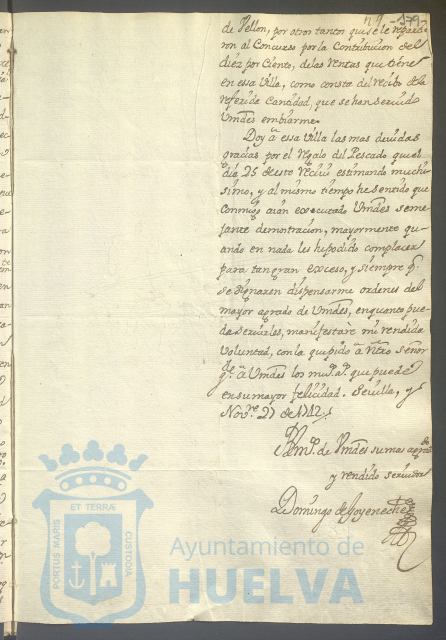 n 9 - 179
de Vellon, por otros tantos que se le repartie
ron al Concurso por la Contribucion del
diez por Ciento, de las Ventas que tiene
en essa Villa, como consta del recibo de la
referida Cantidad, que se han servido
Vmdes embiarme.
Doy â essa Villa las mas devidas
gracias por el regalo del Pescado que el
dia 25 de este recivi estimando muchi
simo, y al mismo tiempo he sentido que
conmigo aian executado Vmdes seme
jante demostracion, mayormente qu
ando en nada les he podido complacer
para tan gran exceso, y siempre q.
se dignaren dispensarme ordenes del
mayor agrado de Vmdes, en quanto pue
da servirles, manifestare mi rendida
Voluntad, con la que pido â Ntro señor
g.e â Vmdes los m.s a.s que puede
en su mayor felicidad. Sevilla, y
Nov.re 27 de 1742
BLM.o de Vmdes su mas
y rendido servidor
Domingo de Goyeneche
PORTUS MARIS
ET TERRÆ
CUSTODIA
Ayuntamiento de
HUELVA